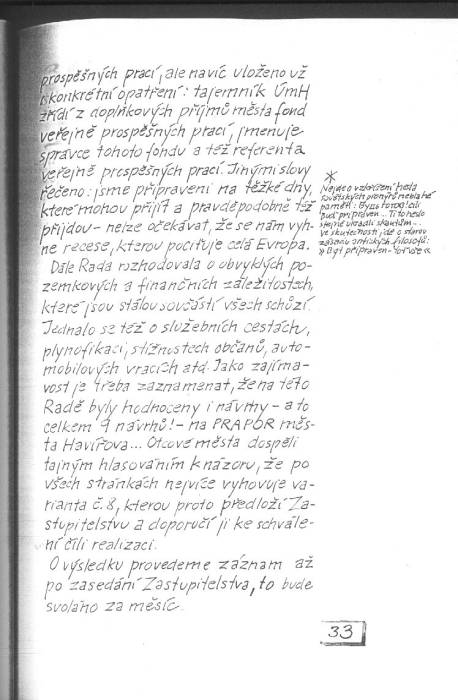 prospěšných prací, ale navíc uloženo už
i konkrétní opatření: tajemník ÚmH
zřídí z doplňkových příjmů města fond
veřejně prospěšných prací, jmenuje
správce tohoto fondu a též referenta
veřejně prospěšných prací. Jinými slovy
řečeno: jsme připraveni na těžké dny,
které mohou přijít a pravděpodobně též
přijdou - nelze očekávat, že se nám vyh-
ne recese, kterou pociťuje celá Evropa.
Dále Rada rozhodovala o obvyklých po-
zemkových a finančních záležitostech,
které jsou stálou součástí všech schůzí.
Jednalo se též o služebních cestách,
plynofikaci, stížnostech občanů, auto-
mobilových vracích atd. Jako zajíma-
vost je třeba zaznamenat, že na této
Radě byly hodnoceny i návrhy - a to
celkem 9 návrhů! - na PRAPOR měs-
ta Havířova... Otcové města dospěli
tajným hlasováním k názoru, že po
všech stránkách nejvíce vyhovuje va-
rianta č. 8, kterou proto předloží Za-
stupitelstvu a doporučí ji ke schvále-
ní čili realizaci.
O výsledku provedeme záznam až
po zasedání Zastupitelstva, to bude
svoláno za měsíc.
*
Nejde o vzkříšení hesla
sovětských pionýrů neblahé
paměti: Buď připraven... Ti to heslo
stejně ukradli skautům -
ve skutečnosti jde o starou
zásadu antických filosofů:
» Být připraven - toť vše «
33